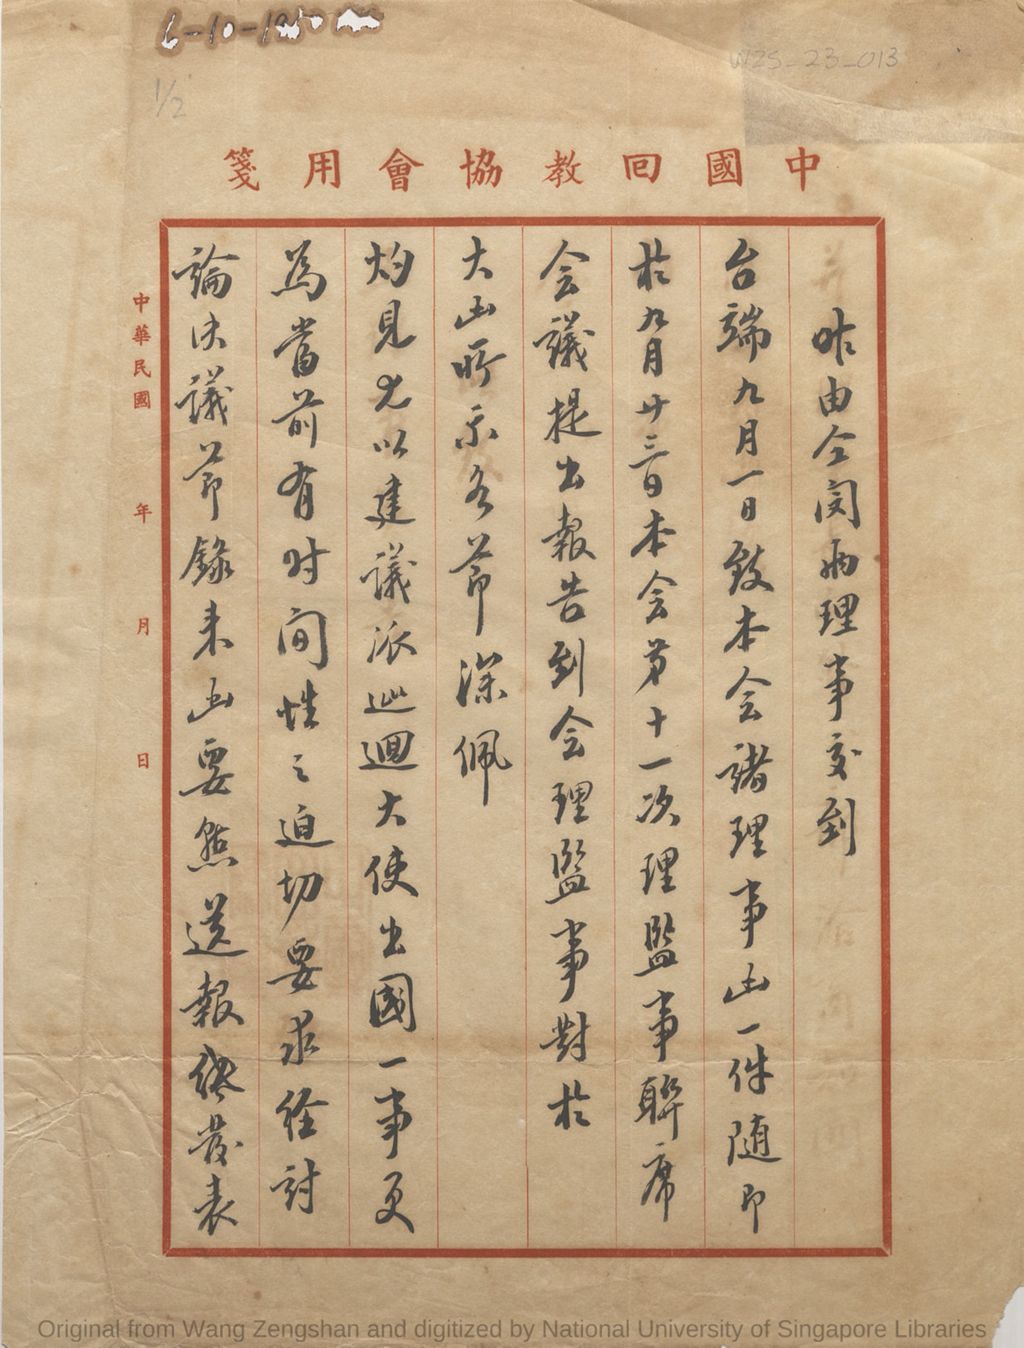 6-10-1950
WZS-23-013
1/2
中國回教協會用箋
昨由仝閔兩理事交到
台端九月一日致本会諸理事函一件随即
於九月廿三日本会第十一次理監事聯席
会議提出報告到会理監事對於
大函所示各節深佩
灼見尤以建議派巡迴大使出國一事更
為當前有时间性之迫切要求经討
論决議節錄来函要點送報發表
中華民國 年 月 日
Original from Wang Zengshan and digitized by National University of Singapore Libraries